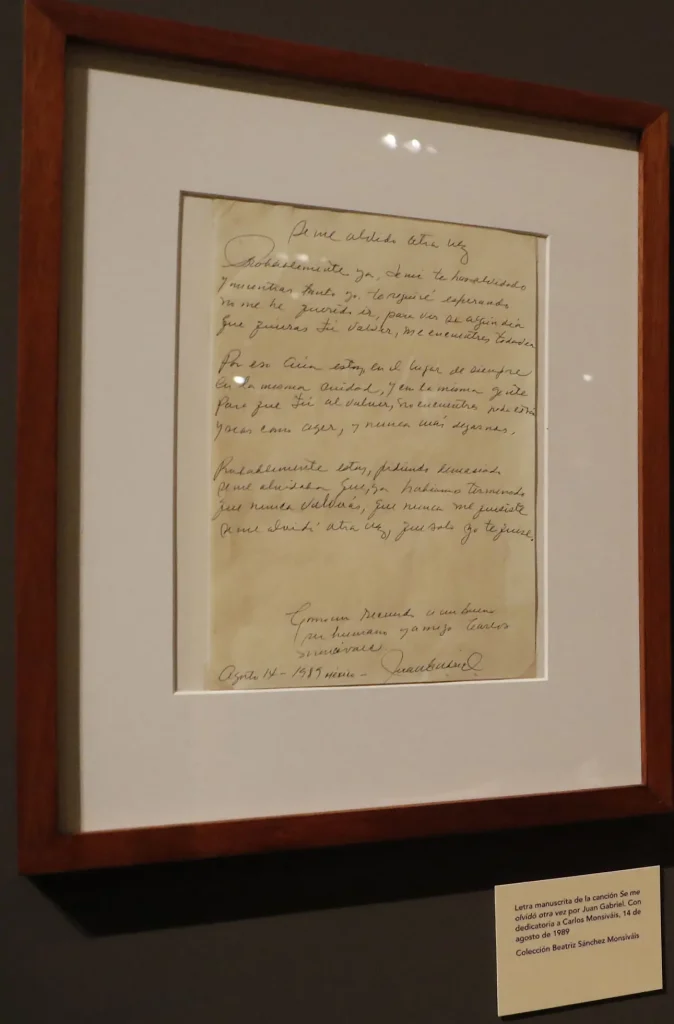 Se me olvido otra vez
Probablemente ya, de mi te has olvidado
y mientras tanto yo, te seguiré esperando
no me he querido ir, para ver si algun dia
que quieras tú volver, me encuentres todavia
Por eso aún estoy en el lugar de siempre
en la misma ciudad, y en la misma gente
para que tú al volver, no encuentres nada
y seas como ayer, y nunca más dejarnos.
Probablemente estoy, pidiendo demasiado
se me olvidaba que, ya habiamos terminado
que nunca volverás, que nunca me quisiste
se me olvidó otra vez, que solo yo te quise.
Como un recuerdo a un bueno
ser humano y amigo Carlos
Monsivais
Agosto 14 - 1989 - Juan Gabriel
Letra manuscrita de la canción Se me
olvidó otra vez por Juan Gabriel. Con
dedicatoria a Carlos Monsiváis, 14 de
agosto de 1989
Colección Beatriz Sánchez Monsiváis